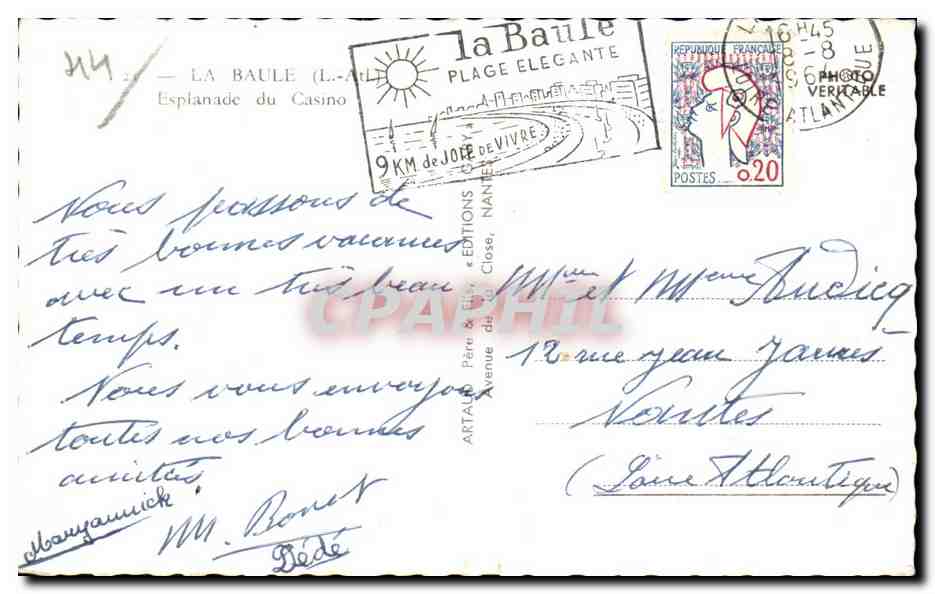 44
— LA BAULE (L.-Atl.)
Esplanade du Casino
la Baule
PLAGE ELEGANTE
9 KM de JOIE DE VIVRE
16H45
8-8
1964
ATLANTIQUE
REPUBLIQUE FRANÇAISE
POSTES 0,20
PHOTO
VERITABLE
Nous passons de
très bonnes vacances
avec un très beau
temps.
Nous vous envoyons
toutes nos bonnes
amitiés
Maryannick
M. Bonet
Dédé
ARTAUD Père & Fils, « EDITIONS GABY »
Avenue de du Close, NANTES
CPAPHIL
Mr et Mme Audicq
12 rue Jean Jaurès
Nantes
(Loire Atlantique)